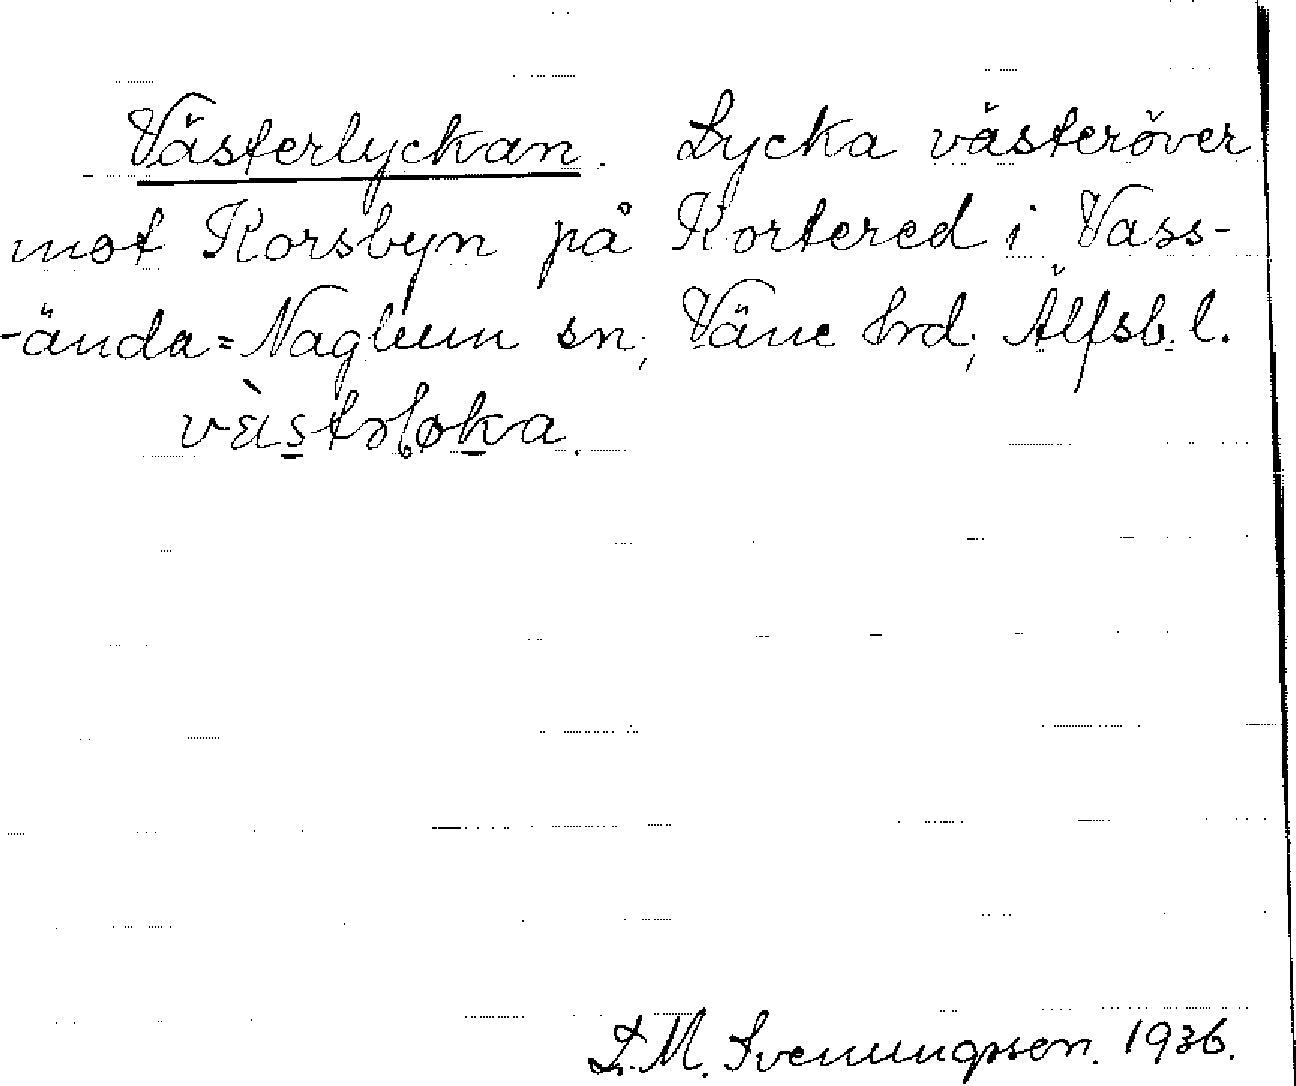 Västerlyckan. Lycka västeröver
mot Korsbyn på Kortered i Vass-
-ända=Naglum sn, Väne hrd, Älfsb. l.
D.M. Svenungsson. 1936.